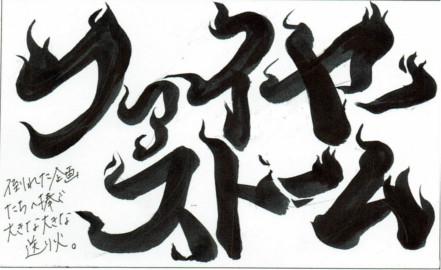 ファイヤー
ストーム
倒れた企画
たちへ捧ぐ
大きな大きな
送り火。